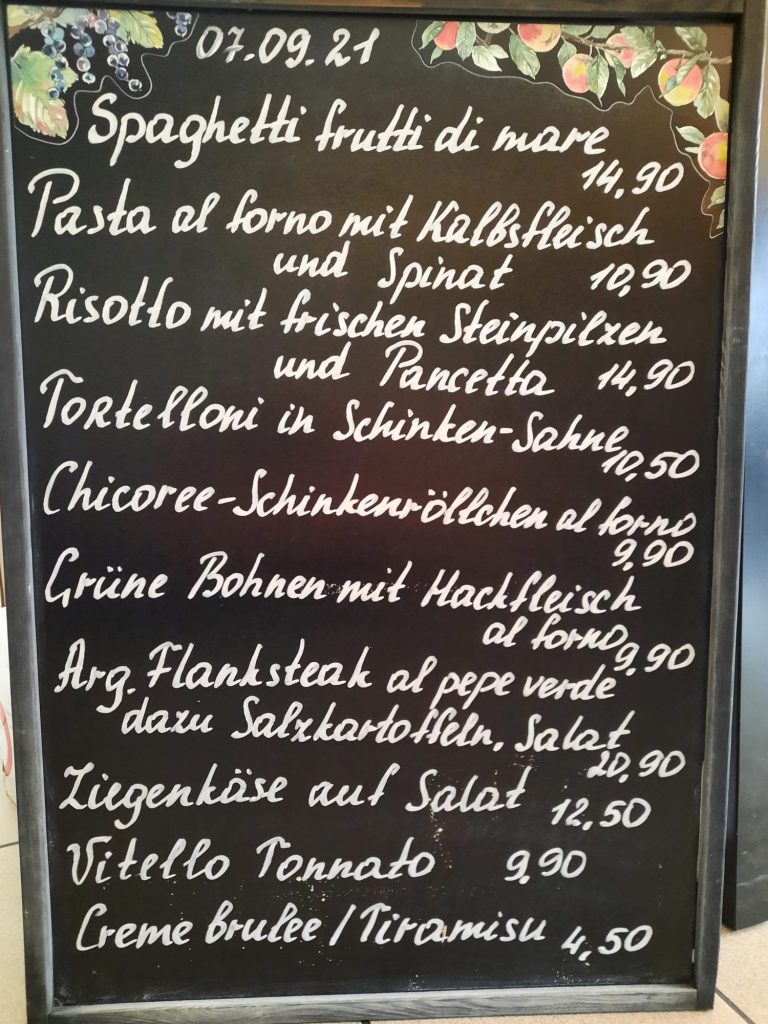 07.09.21
Spaghetti frutti di mare
14,90
Pasta al forno mit Kalbsfleisch
und Spinat 10,90
Risotto mit frischen Steinpilzen
und Pancetta 14,90
Tortelloni in Schinken-Sahne
10,50
Chicoree-Schinkenröllchen al forno
9,90
Grüne Bohnen mit Hackfleisch
al forno 9,90
Arg. Flanksteak al pepe verde
dazu Salzkartoffeln, Salat
20,90
Ziegenkäse auf Salat 12,50
Vitello Tonnato 9,90
Creme brulee / Tiramisu 4,50